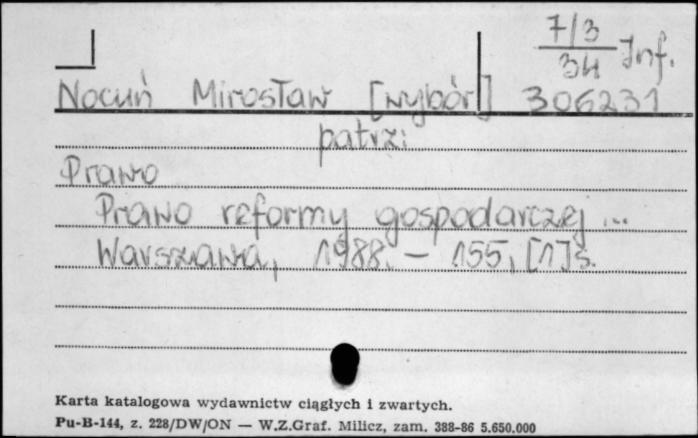 7/3
34 Inf.
Nocuń Mirosław [wybór] 306231
patrz:
Prawo
Prawo reformy gospodarczej ...
Warszawa, 1988. – 155, [1] s.
Karta katalogowa wydawnictw ciągłych i zwartych.
Pu-B-144, z. 228/DW/ON — W.Z.Graf. Milicz, zam. 388-86 5.650.000